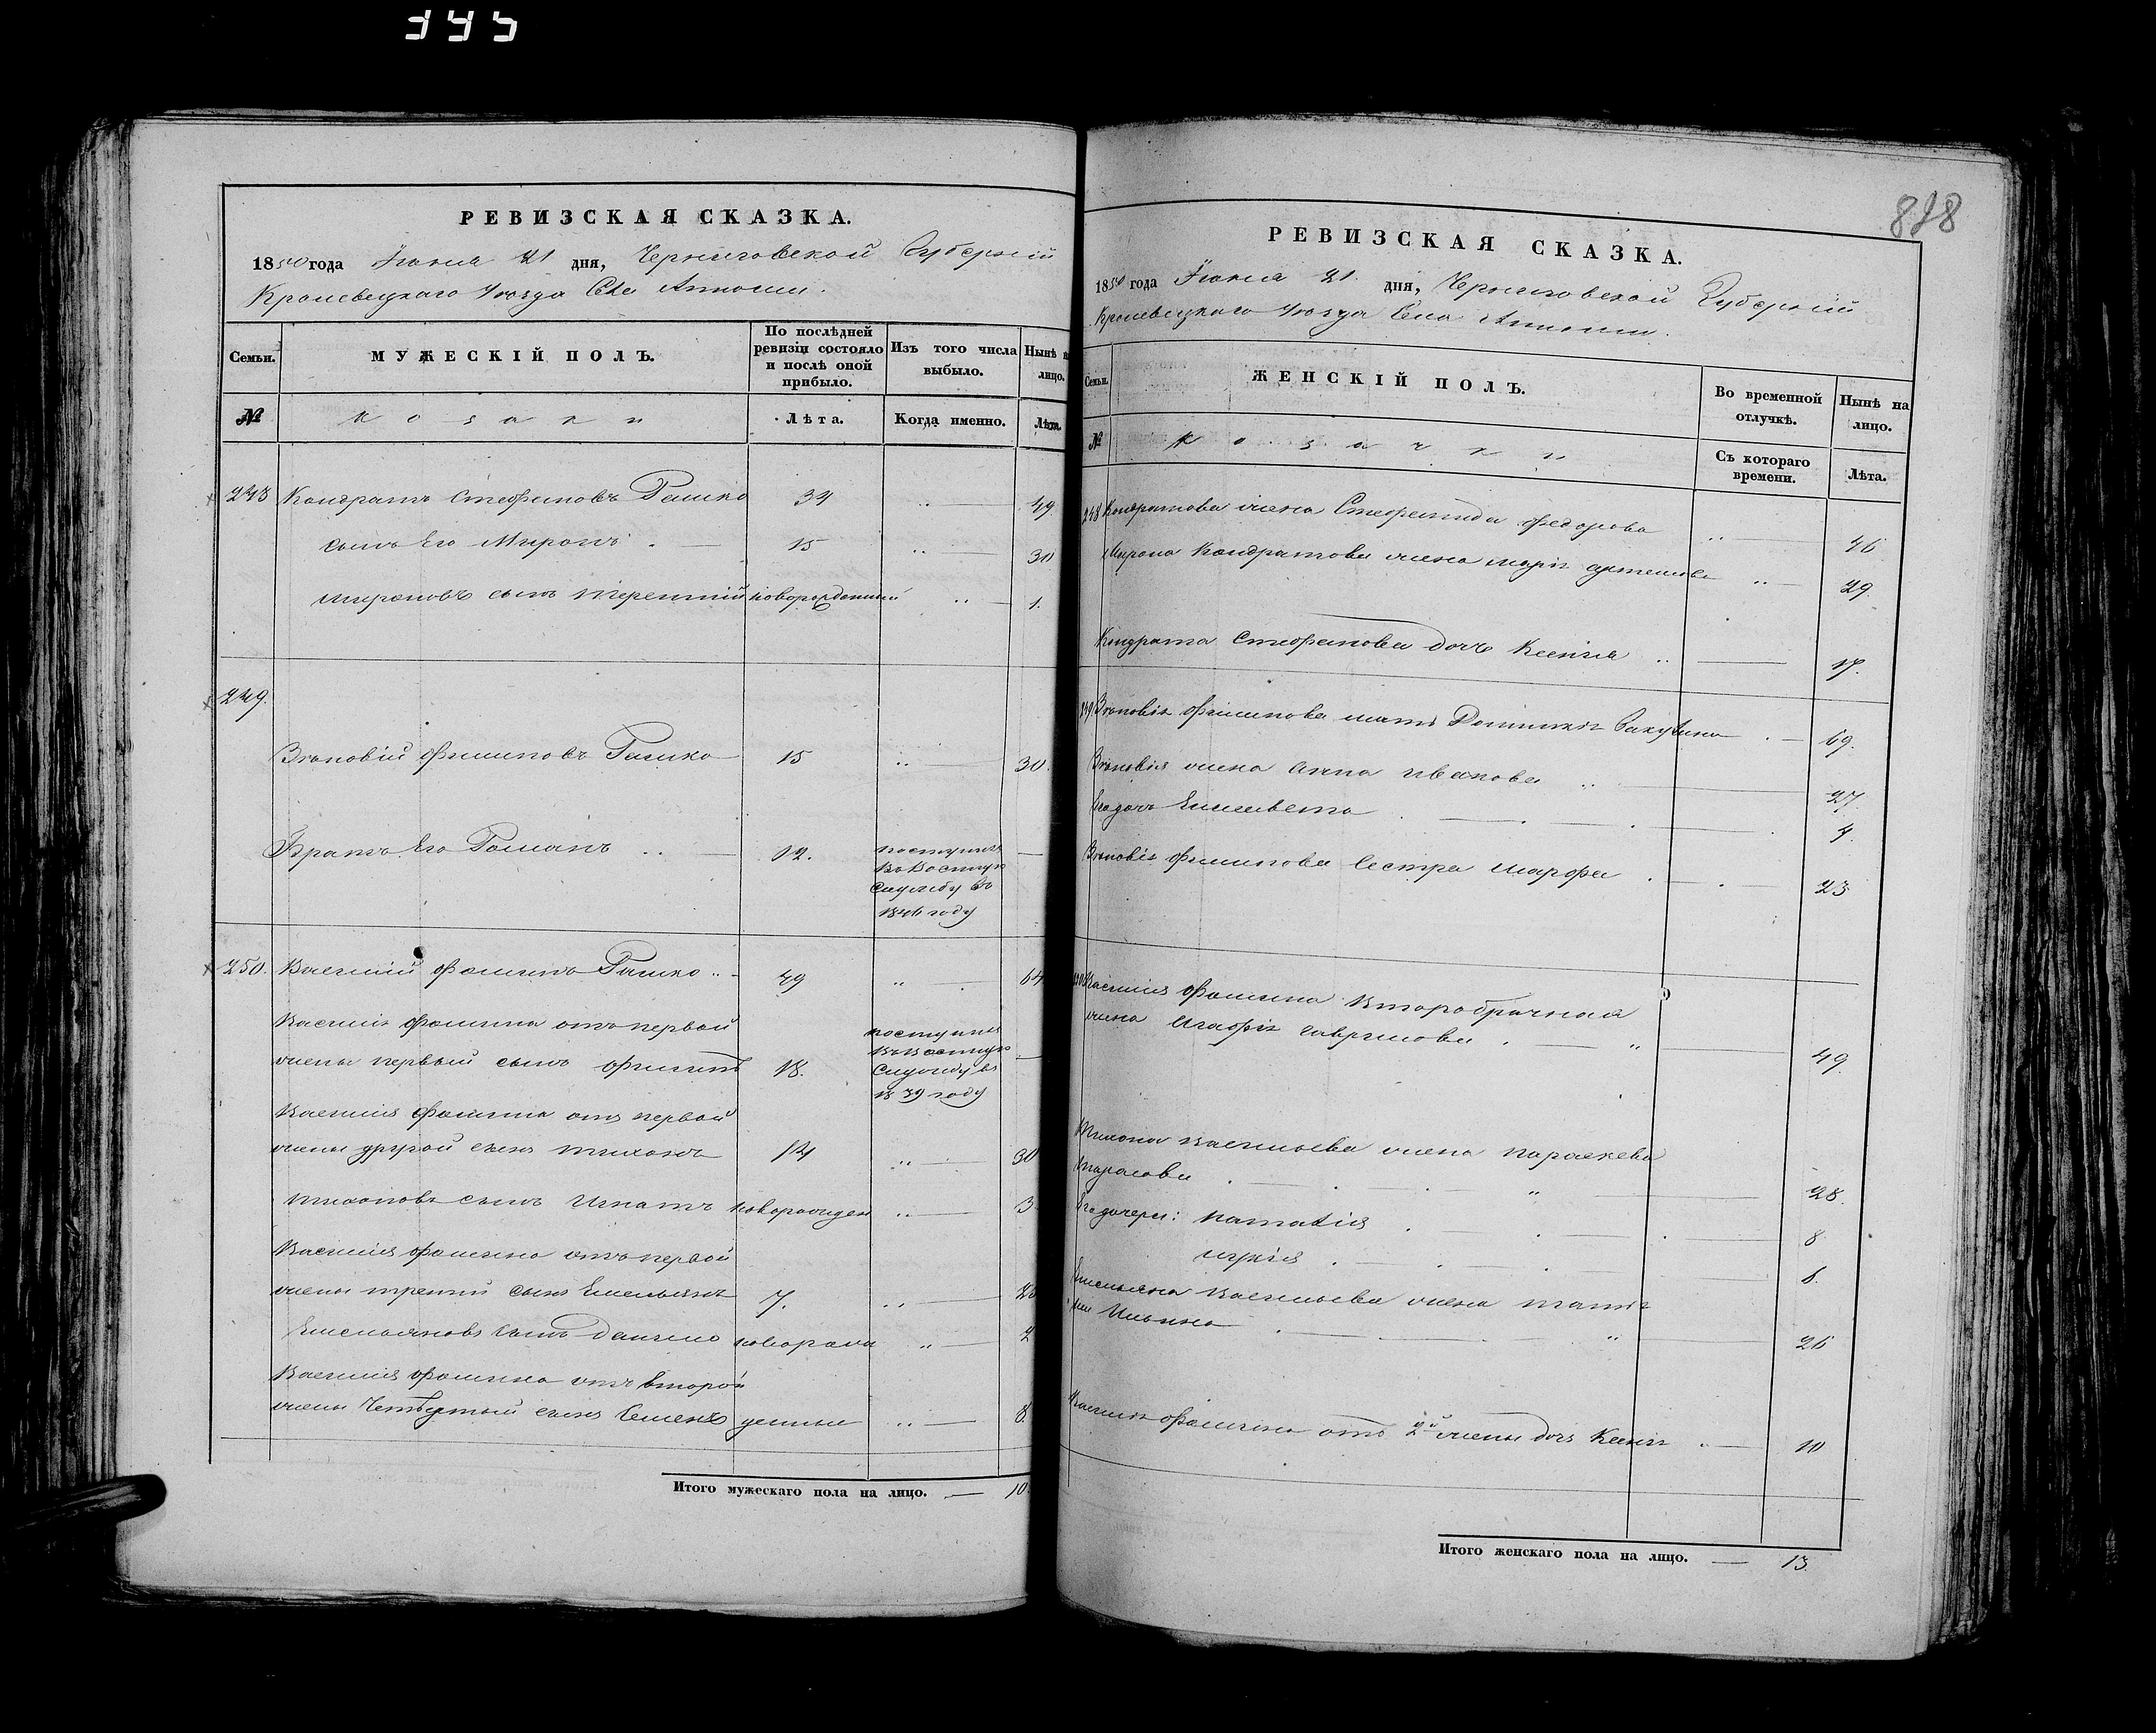 395
РЕВИЗСКАЯ СКАЗКА.
1850 года Іюня 21 дня, Черниговской Губерніи
Кролевецкаго уѣзда Села
МУЖЕСКІЙ ПОЛЪ.
Семьи.
По послѣдней ревизіи состояло и послѣ оной прибыло.
Изъ того числа выбыло.
Нынѣ на лицо.
№
Козаки
Лѣта.
Когда именно.
Лѣта.
248 Кондратъ Стефановъ Гашко 34 49
сынъ Его Миронъ 15 30
Мироновъ сынъ Терентій новорожденный 1.
249.
Зѣновій Филиповъ Гашко 15 30.
Братъ Его Романъ 12. поступилъ
въ
Службу въ
1846 году
250. Василій Фоминъ Гашко 49 64
Василія Фомина отъ первой
жены первый сынъ Филипъ 18. поступилъ
Службу въ
1839 году
Василія Фомина отъ первой
жены другой сынъ Тихонъ 14 30
Тихоновъ сынъ Игнатъ новорожден 3
Василія Фомина отъ первой
жены третій сынъ Емельянъ 7.
Емельяновъ сынъ Данило новорож 2
Василія Фомина отъ второй
жены Четвертый сынъ Семенъ денные 8.
Итого мужескаго пола на лицо. 10.
818
РЕВИЗСКАЯ СКАЗКА.
1850 года Іюня 21. дня, Черниговской Губерніи
Кролевецкаго уѣзда Села
Семьи.
ЖЕНСКІЙ ПОЛЪ.
Во временной отлучкѣ.
Нынѣ на лицо.
№
Козачки
Съ котораго времени.
Лѣта.
248 Кондратова жена Стефанида Федорова 46
Мирона Кондратова жена Марія 29.
Кондрата Стефанова дочь Ксенія 17.
249 Зѣновія Филипова мать Домникія 69.
Зѣновія жена Анна Иванова 27.
Его дочь Елисавета 4.
Зѣновія Филипова Сестра Марфа 23
250 Василія Фомина второбрачная
жена Агафія Гаврилова 49
Тихона Васильева жена Параскева
Тарасова 28.
Его дочери: Наталія 8
6.
Емельяна Васильева жена Татія
на Ильина 26
Василія Фомина отъ 2й жены дочь Ксенія 10
Итого женскаго пола на лицо. 13.